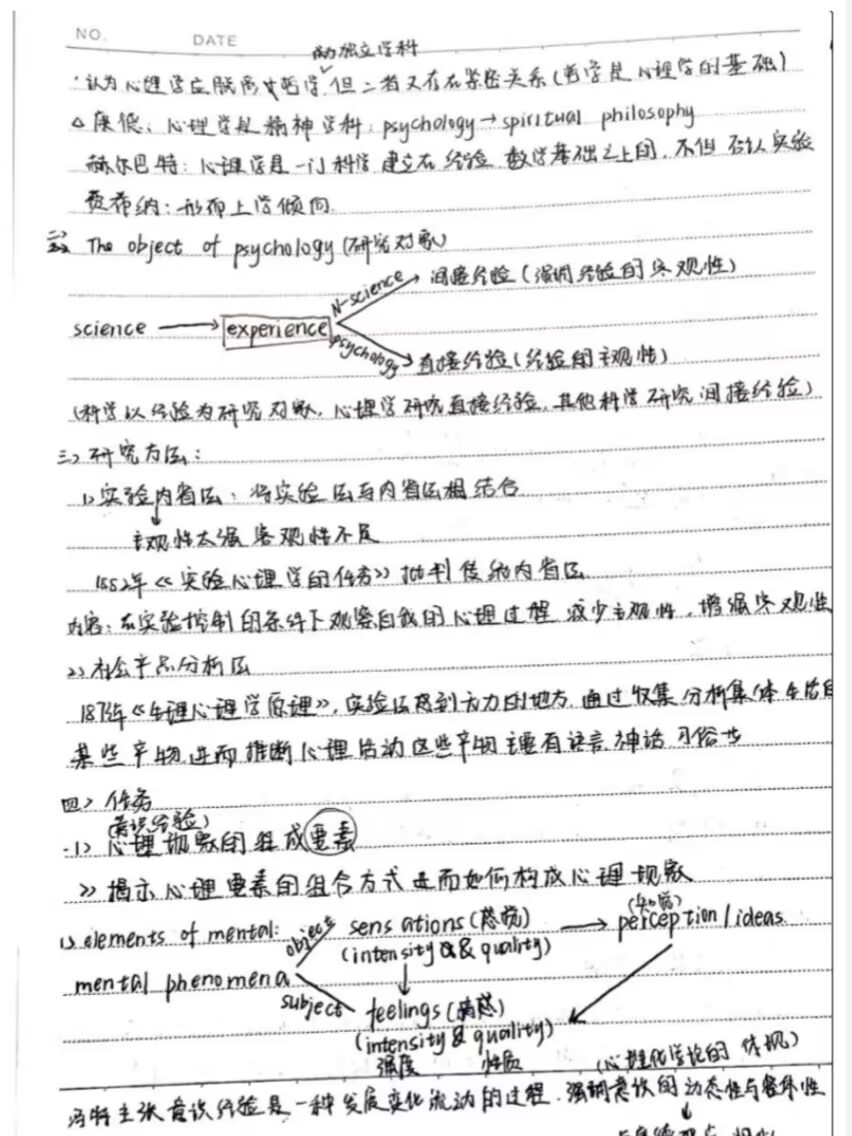 NO. DATE
成为独立学科
·认为心理学应脱离于哲学,但二者又存在紧密关系(哲学是心理学的基础)
△康德:心理学是精神学科:psychology→spiritual philosophy
赫尔巴特:心理学是一门科学 建立在经验 数学基础之上的,不但否认实验
费希纳:形而上学倾向.
二、The object of psychology(研究对象)
N-science 间接经验(强调经验的客观性)
science → experience
psychology 直接经验(经验的主观性)
(科学以经验为研究对象,心理学研究直接经验,其他科学研究间接经验)
三、研究方法:
1、实验内省法:将实验法与内省法相结合
↓
主观性太强 客观性不足
1862年《实验心理学的任务》批判传统内省法
内容:在实验控制的条件下观察自我的心理过程 减少主观性,增强客观性
2、社会产品分析法
《生理心理学原理》,实验法感到无力的地方,通过收集 分析集体生活的
某些产物,进而推断心理活动 这些产物主要有语言 神话 习俗
四、任务
(意识经验)
1、心理现象的组成要素
2、揭示心理要素的组合方式 进而如何构成心理现象
1、elements of mental: object sensations(感觉) → perception/ideas
(知觉)
(intensity & quality)
mental phenomena
subject feelings(情感)
(intensity & quality)
强度 性质 (心理化学论的体现)
冯特主张意识经验是一种发展变化流动的过程.强调意识的动态性与整体性